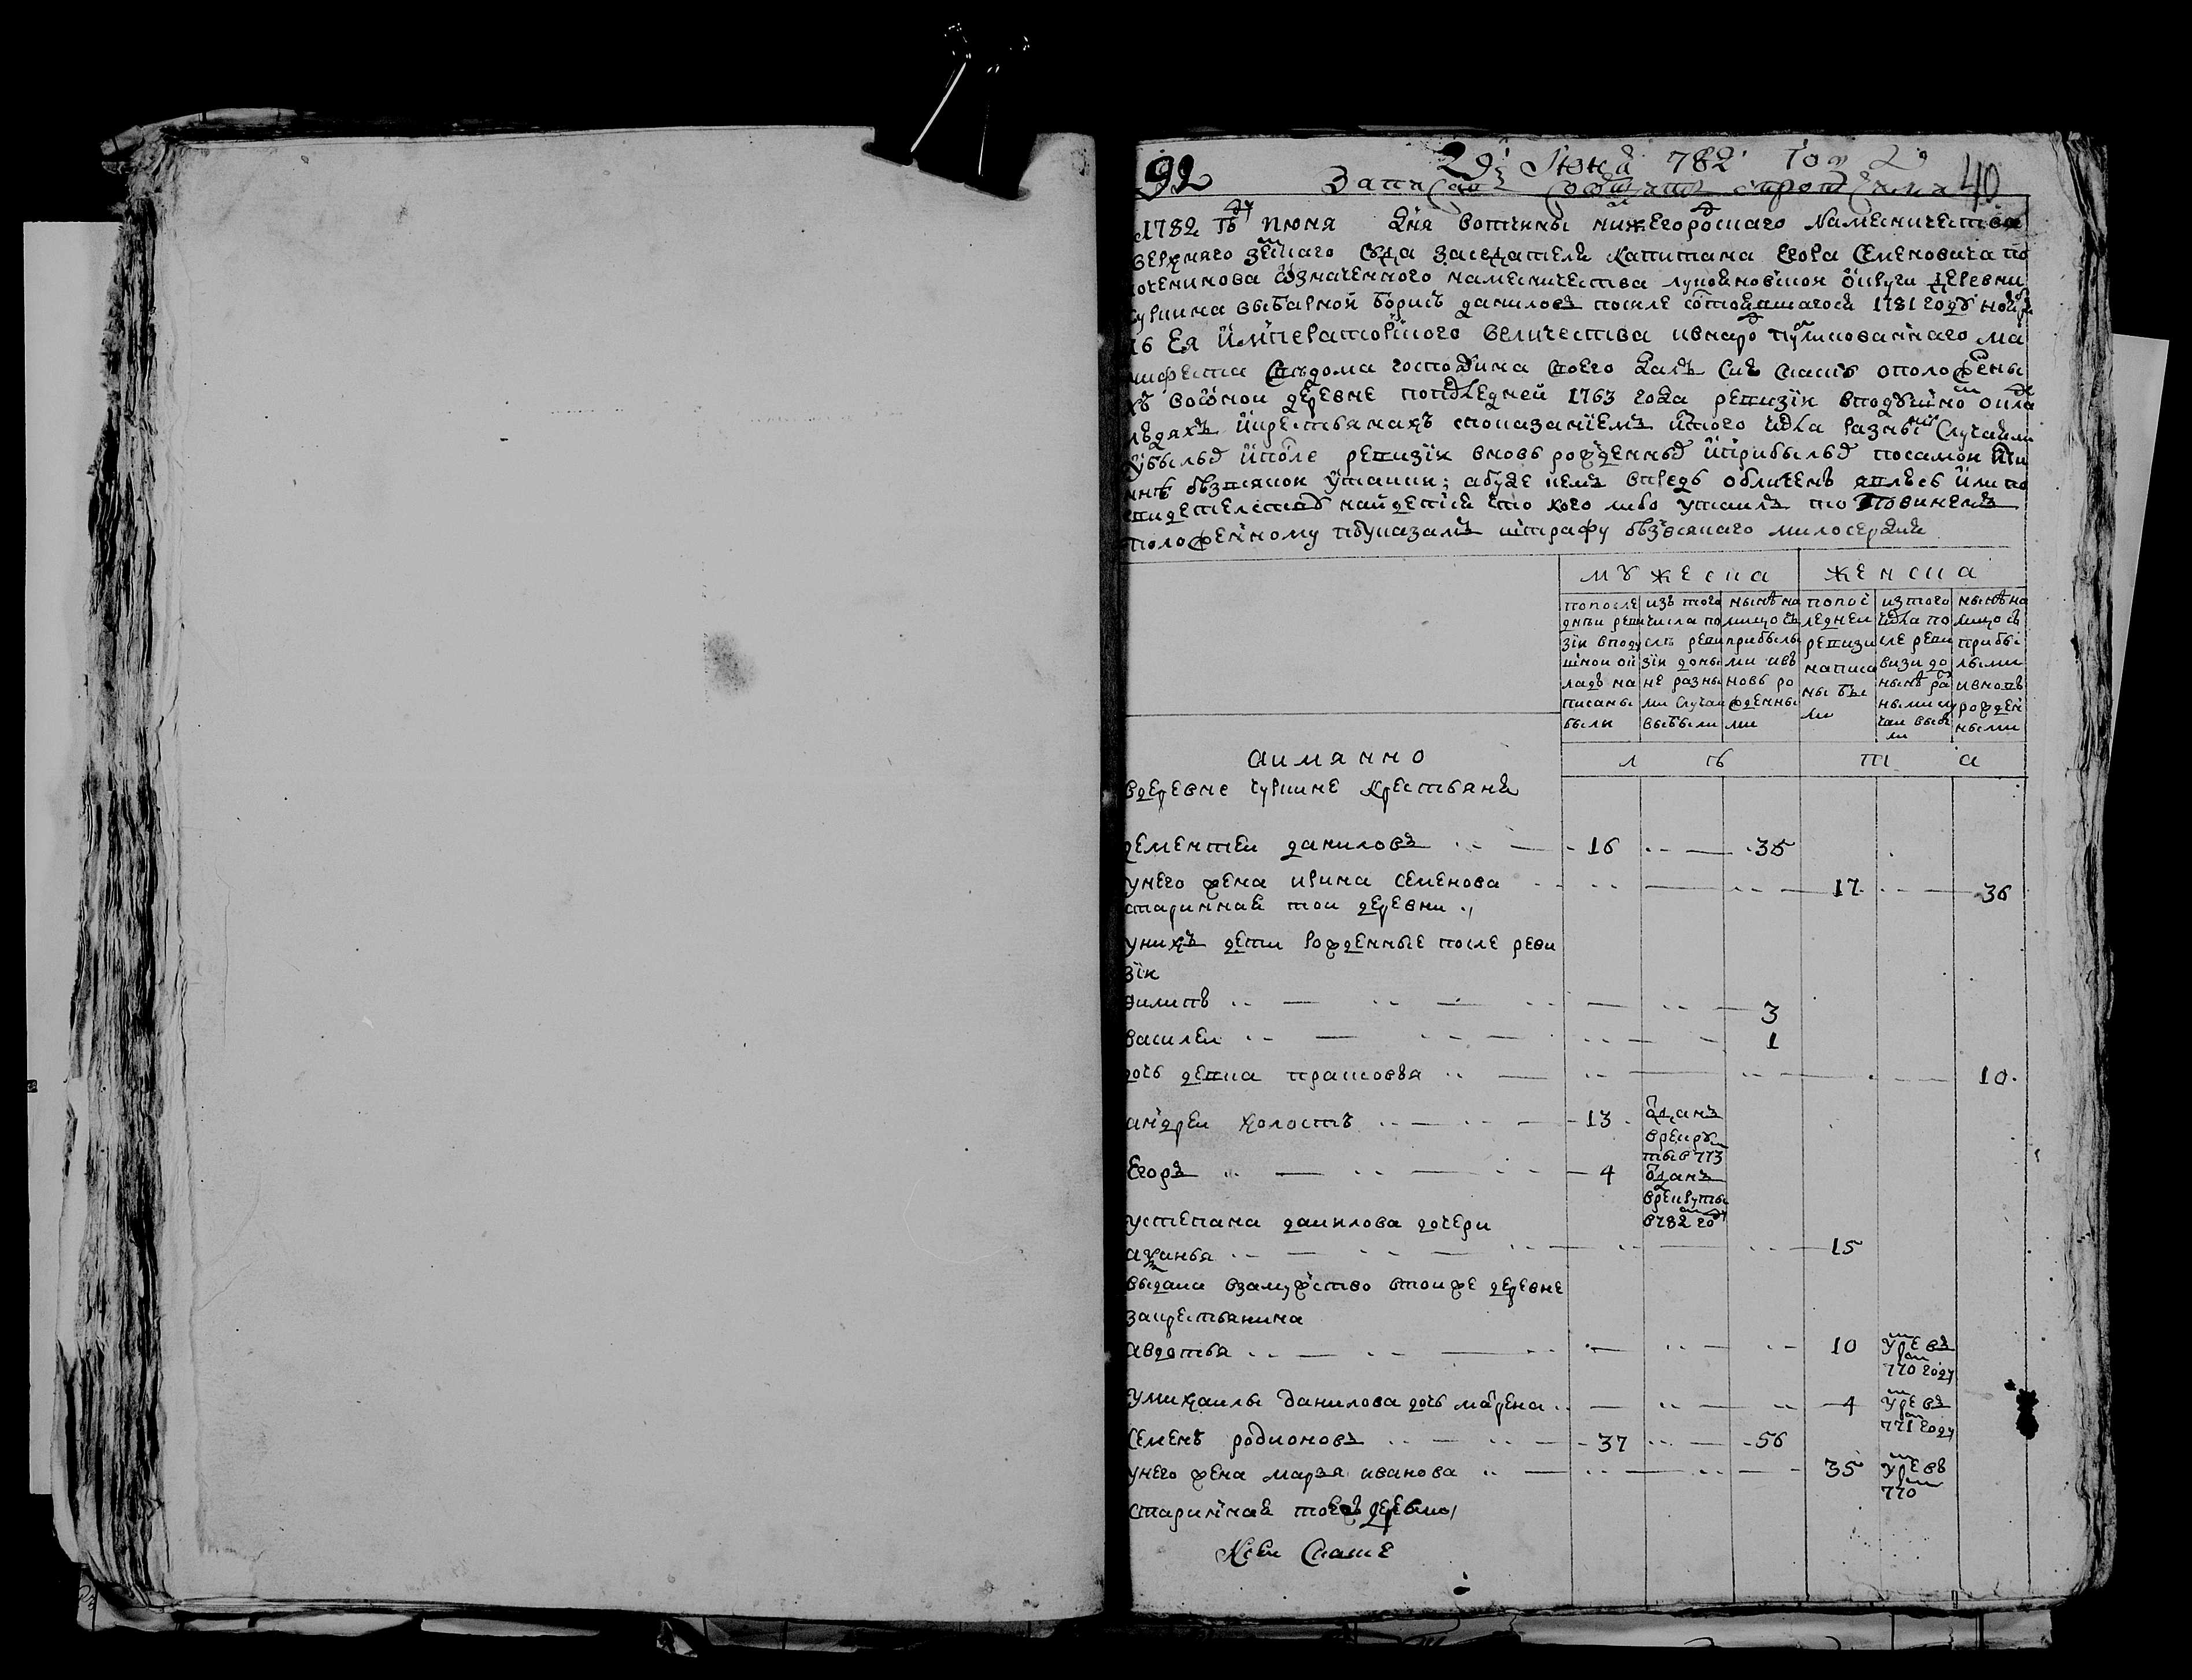 92
29 Июня 782 Году
Записав
40
1782 го июня дня вотчины нижегородского намесничества
верхняго земскаго суда заседателя капитана егора семеновича по
означенного намесничества лукояновской округи деревни
выборной борис данилов после состоявшагося 1781 году ноября
16 Ея императорского величества ивнарод публикованнаго ма
нифеста сведома господина своего дал сию скаску оположенны
хъ вооной деревне попоследней 1763 года ревизiи вподушной окла
дъ людяхъ икрестьянахъ споказаниемъ изтого числа разными случаями
убылыхъ ипосле ревизiи вновь рожденныхъ иприбылыхъ посамой исти
ннѣ безвсякой утайки; абуде кемъ впредь обличенъ явлюсь или по
свидетелствъ найдется что кого либо утаилъ то повиненъ
положенному поуказамъ штрафу безвсякаго милосердия
мужеска женска
попосле
днеи реви
зiи вподу
шнои ок
ладъ на
писаны
были
изъ того
числа по
слѣ реви
зiи доны
не разны
ми случаи
выбыли
нынѣ на
лицо съ
прибылы
ми ивъ
новь ро
жденны
ми
попос
ледней
ревизи
написа
ны бы
ли
изтого
числа по
сле реви
визи до
нынѣ раз
ными слу
чаи выбы
ли
нынѣ на
лицо съ
прибы
лыми
ивновь
рожден
ными
аимянно
л ѣ т а
вдеревне крестьянъ
дементеи даниловъ 16 35
унего жена ирина семенова 17 36
стариннаѧ тои деревни
унихъ дети рожденные после реви
зiи
филипъ 3
василеи 1
дочь девка прасковья 10
андреи холостъ 13 отданъ
врекру
ты в 773
Егоръ 4 отданъ
врекруты
в782 году
устепана данилова дочери
аксинья 15
выдана взамужство втоиже деревне
закрестьянина
авдотья 10 умре въ
770 году
умихаилы данилова дочь мафрена 4 умре въ
771 году
Семенъ родионовъ 37 56
унего жена марья иванова 35 умре въ
770
стариннаѧ тоежъ деревни
Ксеи Скаске